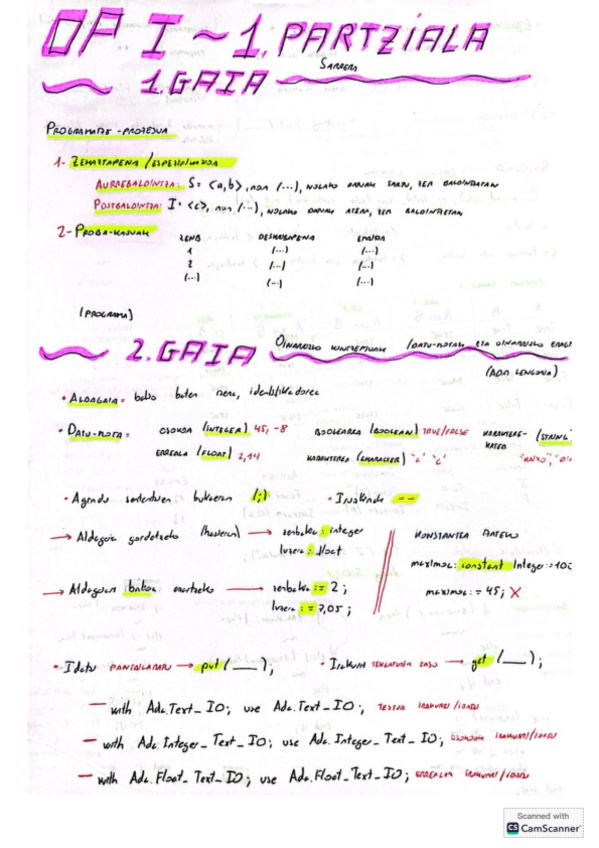 OP I ~ 1. PARTZIALA
1. GAIA SARRERA
PROGRAMATZE-PROZESUA
1- ZEHAZTAPENA / ESPEZIFIKAZIOA
AURREBALDINTZA: S = <a,b>, non (...), NOLAKO DATUAK SARTU, ZER BALDINTZATAN
POSTBALDINTZA: I = <c>, non (...), NOLAKO DATUAK ATERA, ZER BALDINTZETAN
2- PROBA-KASUAK
ZENB DESKRIBAPENA EMAITZA
1 (...) (...)
2 (...) (...)
(...) (...) (...)
(PROGRAMA)
2. GAIA OINARRIZKO KONTZEPTUAK (DATU-MOTAK ETA OINARRIZKO ERAGI
(ADA LENGOAIA)
• ALDAGAIA = balio baten izena, identifikadorea
• DATU-MOTA = OSOKOA (INTEGER) 45, -8 BOOLEARRA (BOOLEAN) TRUE/FALSE KARAKTERE-KATEA (STRING)
ERREALA (FLOAT) 2,14 KARAKTEREA (CHARACTER) "KAIXO",
• Agindu sententzien bukaeran (;) • Iruzkinak --
→ Aldagaia gordetzeko (hasieran) → zenbakia : integer KONSTANTEA
luzera : float maximoa: constant Integer := 100
→ Aldagaiari balioa emateko → zenbakia := 2 ; maximoa := 45 ; X
luzera := 7,05 ;
• Idatzi PANTAILARATU → put (___) ; • Irakurri TEKLATUTIK → get (___) ;
— with Ada.Text_IO; use Ada.Text_IO; TESTUA IRAKURRI/IDATZI
— with Ada.Integer_Text_IO; use Ada.Integer_Text_IO; OSOKOAK IRAKURRI/IDATZI
— with Ada.Float_Text_IO; use Ada.Float_Text_IO; ERREALAK IRAKURRI/IDATZI
Scanned with
CS CamScanner